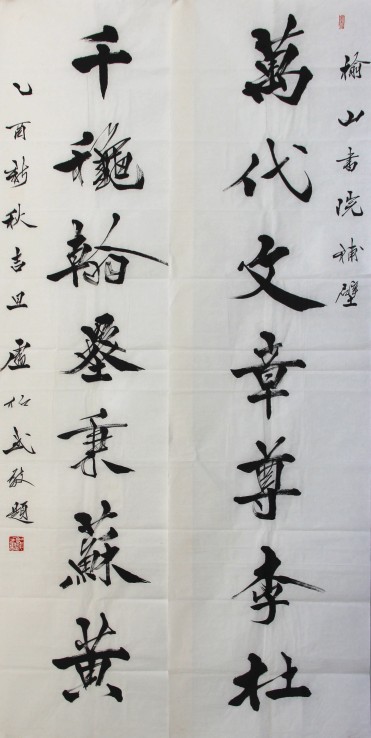 榆山書院補壁
萬代文章尊李杜
千龝翰墨秉蘇黄
乙酉新秋吉旦盧敬題